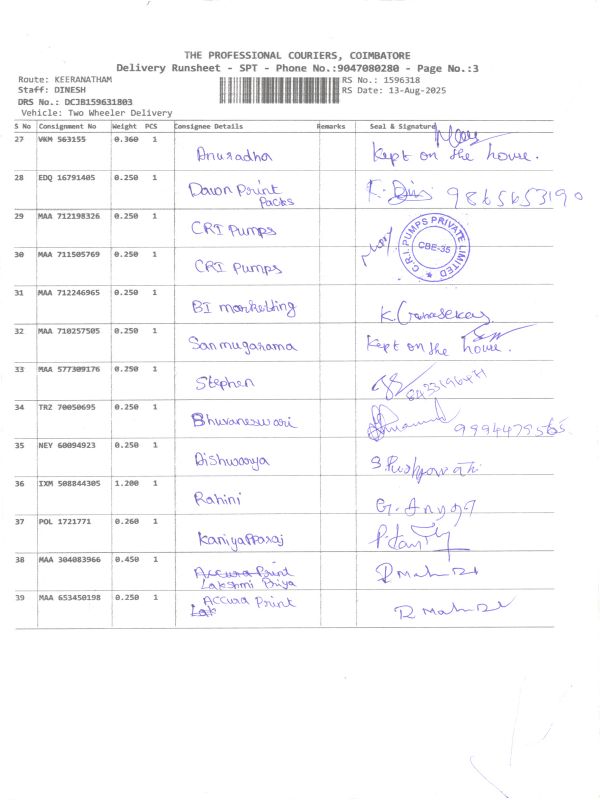 THE PROFESSIONAL COURIERS, COIMBATORE
Delivery Runsheet - SPT - Phone No.:9047080280 - Page No.:3
Route: KEERANATHAM RS No.: 1596318
Staff: DINESH RS Date: 13-Aug-2025
DRS No.: DCJB159631803
Vehicle: Two Wheeler Delivery
S No Consignment No Weight PCS Consignee Details Remarks Seal & Signature
27 VKM 563155 0.360 1 Anuradha Kept on the house.
28 EDQ 16791405 0.250 1 Dawn Print Packs 9865653190
29 MAA 712198326 0.250 1 CRI Pumps
C.R.I. PUMPS PRIVATE LIMITED
CBE-35
30 MAA 711505769 0.250 1 CRI Pumps
31 MAA 712246965 0.250 1 BI marketting K.
32 MAA 710257505 0.250 1 Sanmugarama Kept on the house.
33 MAA 577309176 0.250 1 Stephen
34 TRZ 70050695 0.250 1 Bhuvaneswari 9994479565
35 NEY 60094923 0.250 1 Aishwarya
36 IXM 508844305 1.200 1 Rahini
37 POL 1721771 0.260 1 Kaniyappraj
38 MAA 304083966 0.450 1 Accura Print
Lakshmi Priya
39 MAA 653450198 0.250 1 Accura Print
Lak